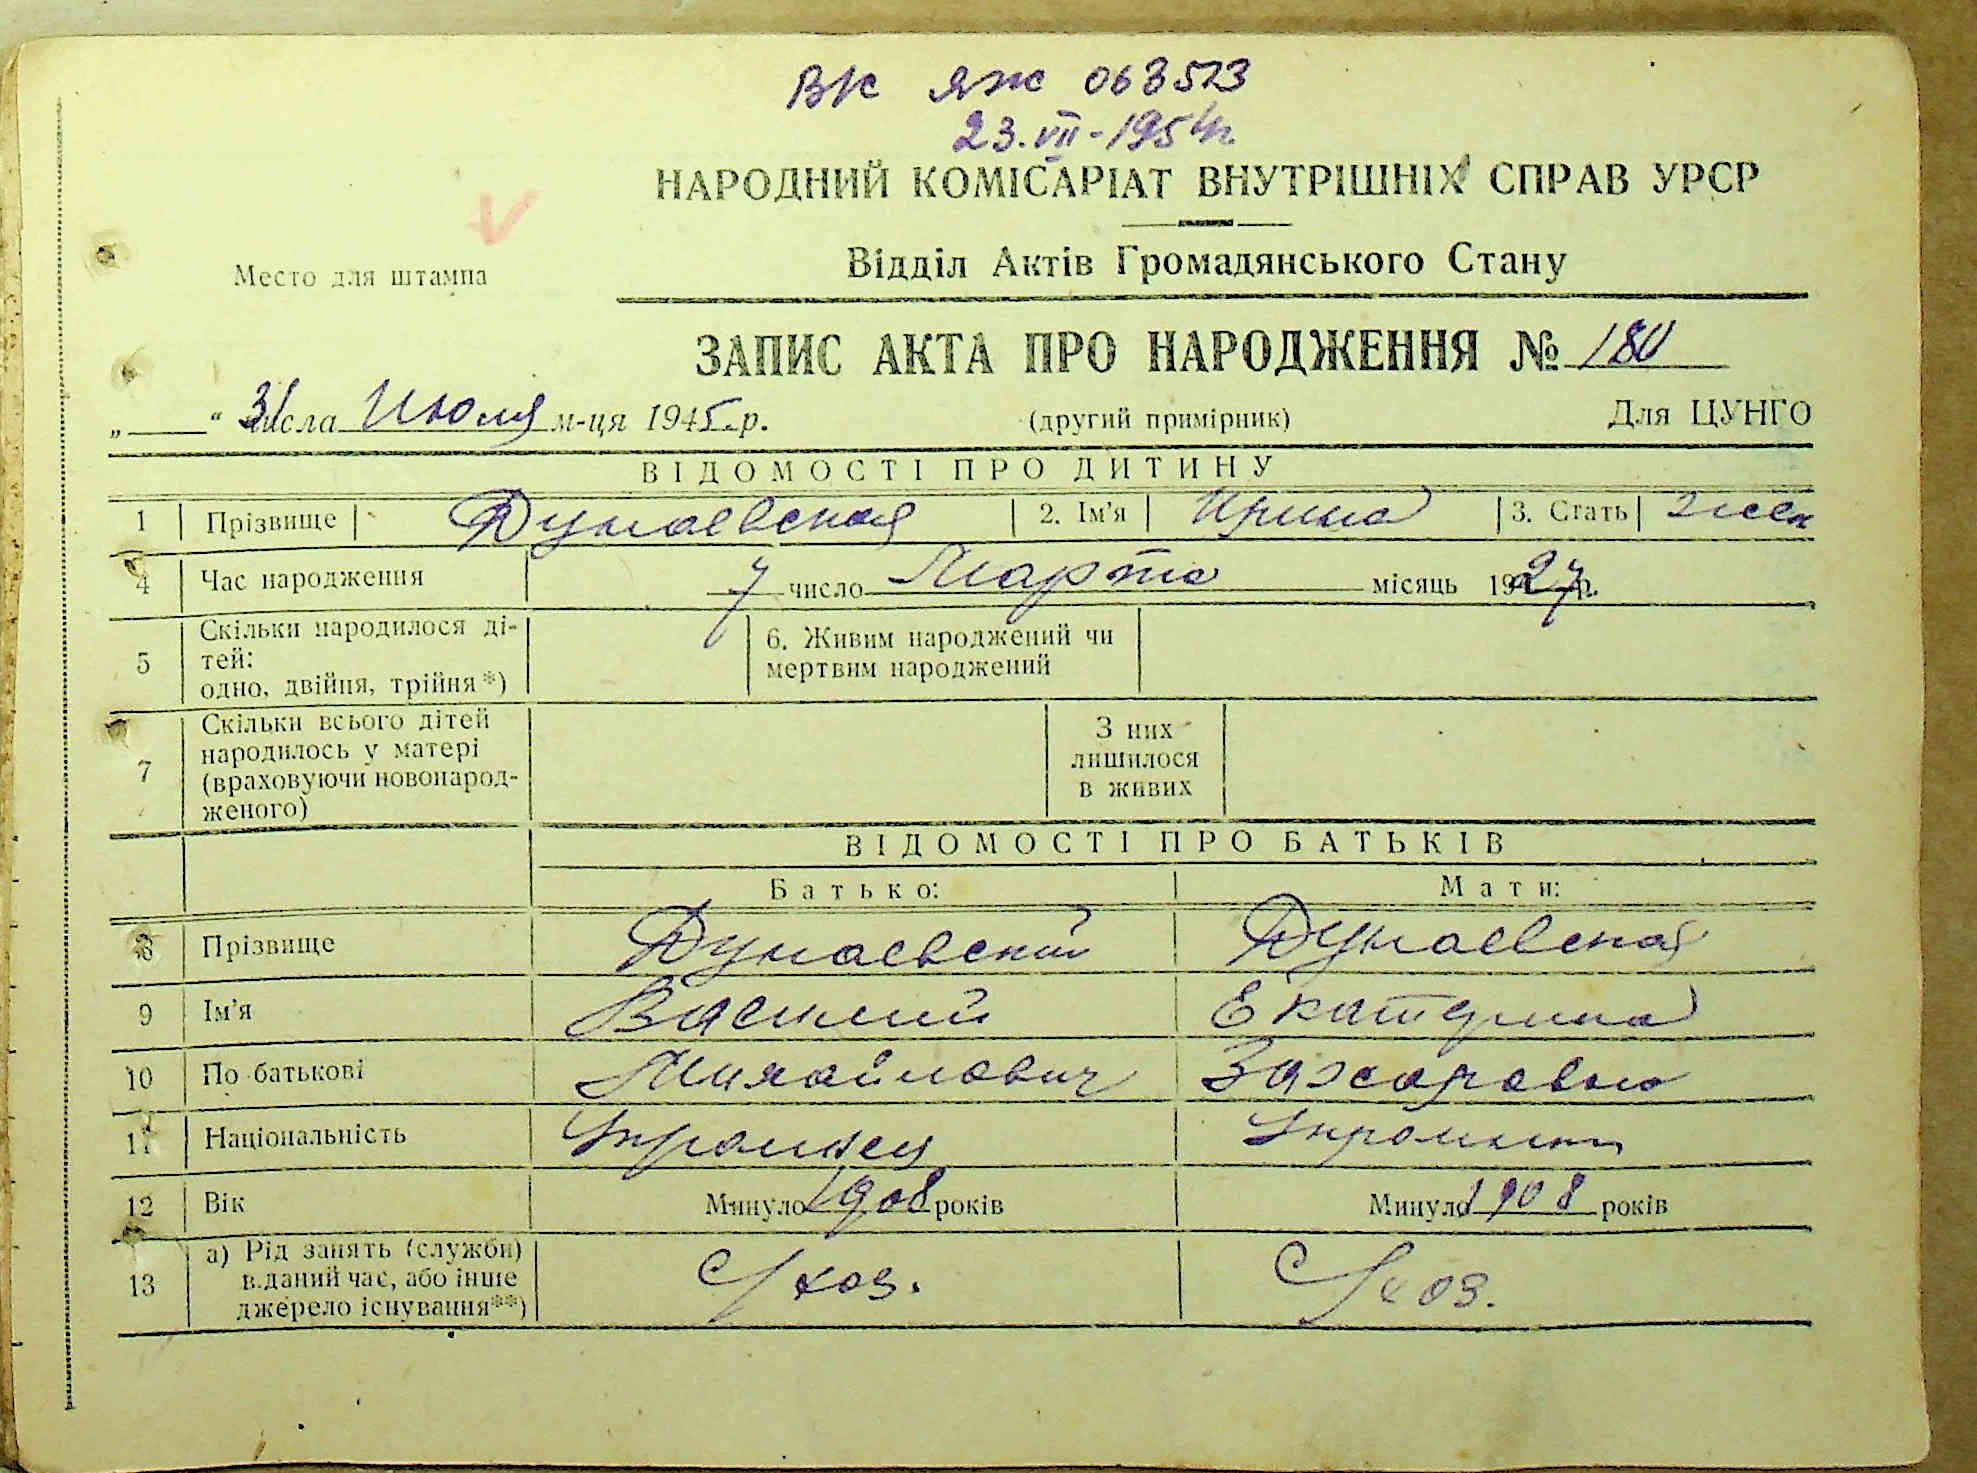 ВК ЯЖ 063523
23.VII-1954г.
НАРОДНИЙ КОМІСАРІАТ ВНУТРІШНІХ СПРАВ УРСР
Место для штампа
Відділ Актів Громадянського Стану
ЗАПИС АКТА ПРО НАРОДЖЕННЯ № 180
„ “ 31 числа Июля м-ця 1945 р. (другий примірник) Для ЦУНГО
ВІДОМОСТІ ПРО ДИТИНУ
1 Прізвище Дунаевская 2. Ім'я Ирина 3. Стать жен
4 Час народження 7 число Марта місяць 1927 р.
5 Скільки народилося ді-
тей:
одно, двійня, трійня*)
6. Живим народжений чи
мертвим народжений
7 Скільки всього дітей
народилось у матері
(враховуючи новонарод-
женого)
З них
лишилося
в живих
ВІДОМОСТІ ПРО БАТЬКІВ
Батько: Мати:
8 Прізвище Дунаевский Дунаевская
9 Ім'я Василий Екатерина
10 По батькові Михайлович Захаровна
11 Національність Украинец Украинка
12 Вік Минуло 1908 років Минуло 1908 років
13 а) Рід занять (служби)
в даний час, або інше
джерело існування**)
С/хоз. С/хоз.